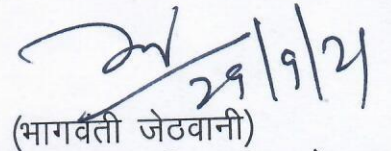 29/9/21
(भागवंती जेठवानी)